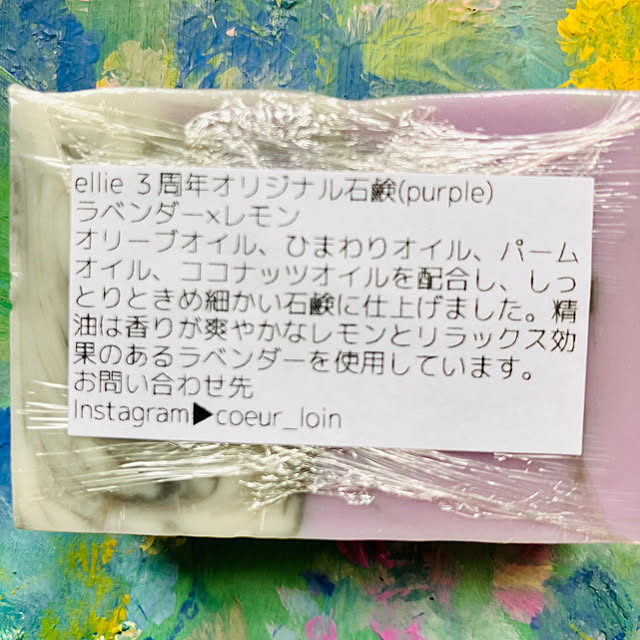 ellie 3周年オリジナル石鹸(purple)
ラベンダー×レモン
オリーブオイル、ひまわりオイル、パーム
オイル、ココナッツオイルを配合し、しっ
とりときめ細かい石鹸に仕上げました。精
油は香りが爽やかなレモンとリラックス効
果のあるラベンダーを使用しています。
お問い合わせ先
Instagram▶coeur_loin